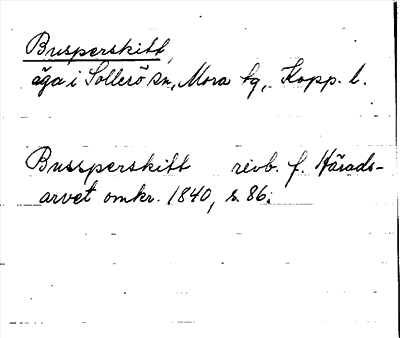 Busperskitt,
äga i Sollerö sn, Mora tg, Kopp. l.
Bussperskitt revb. f. Härads-
arvet omkr. 1840, s. 86.